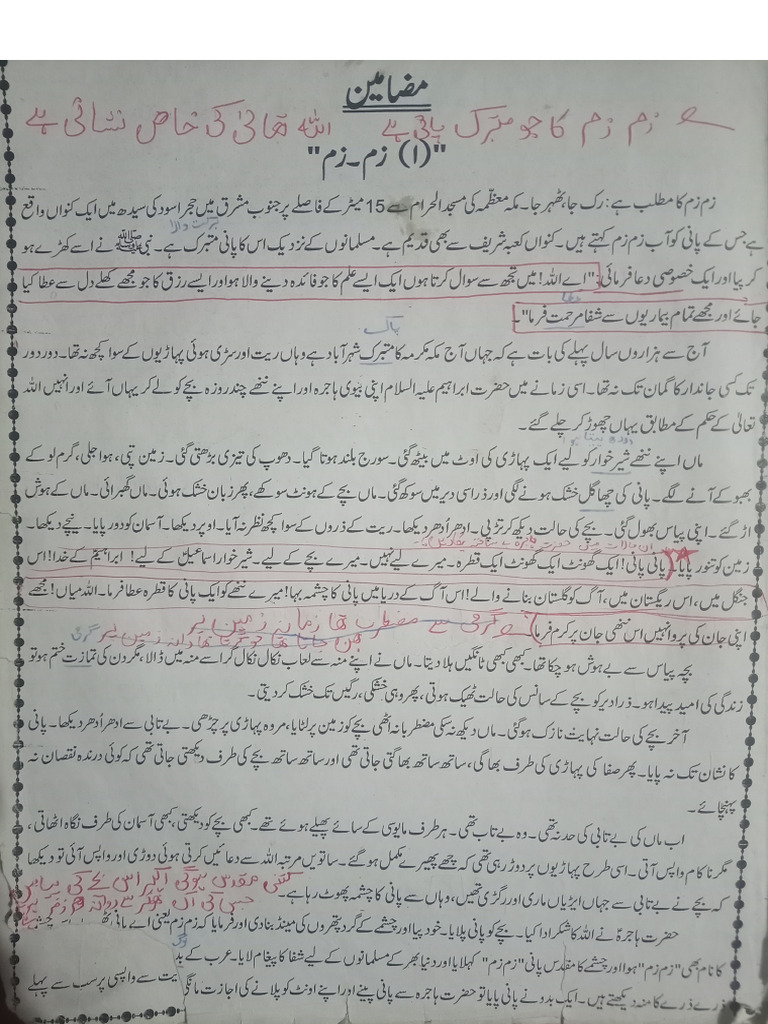 مضامین
زم زم کا جو متبرک پانی ہے اللہ تعالیٰ کی خاص نشانی ہے
"(۱) زم۔زم"
زم زم کا مطلب ہے: رک جا، ٹھہر جا۔ مکہ معظمہ کی مسجد الحرام سے 15 میٹر کے فاصلے پر جنوب مشرق میں حجر اسود کی سیدھ میں ایک کنواں واقع
برکت والا
ہے جس کے پانی کو آب زم زم کہتے ہیں۔ کنواں کعبہ شریف سے بھی قدیم ہے۔ مسلمانوں کے نزدیک اس کا پانی متبرک ہے۔ نبی ﷺ نے اسے کھڑے ہو
کر پیا اور ایک خصوصی دعا فرمائی: "اے اللہ! میں تجھ سے سوال کرتا ہوں ایک ایسے علم کا جو فائدہ دینے والا ہو اور ایسے رزق کا جو مجھے کھلے دل سے عطا کیا
عطا
جائے اور مجھے تمام بیماریوں سے شفا مرحمت فرما"۔
پاک
آج سے ہزاروں سال پہلے کی بات ہے کہ جہاں آج مکہ مکرمہ کا متبرک شہر آباد ہے وہاں ریت اور سڑی ہوئی پہاڑیوں کے سوا کچھ نہ تھا۔ دور دور
تک کسی جاندار کا گمان تک نہ تھا۔ اسی زمانے میں حضرت ابراہیم علیہ السلام اپنی بیوی ہاجرہ اور اپنے ننھے چند روزہ بچے کو لے کر یہاں آئے اور انہیں اللہ
تعالیٰ کے حکم کے مطابق یہاں چھوڑ کر چلے گئے۔
دودھ پیتا
ماں اپنے ننھے شیر خوار کو لیے ایک پہاڑی کی اوٹ میں بیٹھ گئی۔ سورج بلند ہوتا گیا۔ دھوپ کی تیزی بڑھتی گئی۔ زمین تپی، ہوا جلی، گرم لو کے
بھبوکے آنے لگے۔ پانی کی چھاگل خشک ہونے لگی اور ذرا سی دیر میں سوکھ گئی۔ ماں بچے کے ہونٹ سوکھے، پھر زبان خشک ہوئی۔ ماں گھبرائی۔ ماں کے ہوش
اڑ گئے۔ اپنی پیاس بھول گئی۔ بچے کی حالت دیکھ کر تڑپی۔ ادھر اُدھر دیکھا۔ ریت کے ذروں کے سوا کچھ نظر نہ آیا۔ اوپر دیکھا۔ آسمان کو دور پایا۔ نیچے دیکھا۔
زمین کو تنور پایا (پانی پانی! ایک گھونٹ ایک گھونٹ ایک قطرہ۔ میرے لیے نہیں۔ میرے بچے کے لیے۔ شیر خوار اسماعیلؑ کے لیے! ابراہیمؑ کے خدا! اس
جنگل میں، اس ریگستان میں، آگ کو گلستان بنانے والے! اس آگ کے دریا میں پانی کا چشمہ بہا! میرے ننھے کو ایک پانی کا قطرہ عطا فرما۔ اللہ میاں! مجھے
اپنی جان کی پروا نہیں اس ننھی جان پر کرم فرما)
بچہ پیاس سے بے ہوش ہو چکا تھا۔ کبھی کبھی ٹانگیں ہلا دیتا۔ ماں نے اپنے منہ سے لعاب نکال نکال کر اسے منہ میں ڈالا، مگر دن کی تمازت ختم ہو تو
زندگی کی امید پیدا ہو۔ ذرا دیر کو بچے کے سانس کی حالت ٹھیک ہوتی، پھر وہی خشکی، رگیں تک خشک کر دیتی۔
آخر بچے کی حالت نہایت نازک ہو گئی۔ ماں دیکھ نہ سکی مضطربانہ اٹھی بچے کو زمین پر لٹایا، مروہ پہاڑی پر چڑھی۔ بے تابی سے ادھر اُدھر دیکھا۔ پانی
کا نشان تک نہ پایا۔ پھر صفا کی پہاڑی کی طرف بھاگی، ساتھ ساتھ بھاگتی جاتی تھی اور ساتھ ساتھ بچے کی طرف دیکھتی جاتی تھی کہ کوئی درندہ نقصان نہ
پہنچائے۔
اب ماں کی بے تابی کی حد نہ تھی۔ وہ بے تاب تھی۔ ہر طرف مایوسی کے سائے پھیلے ہوئے تھے۔ کبھی بچے کو دیکھتی، کبھی آسمان کی طرف نگاہ اٹھاتی،
مگر ناکام واپس آتی۔ اسی طرح پہاڑیوں پر دوڑ رہی تھی کہ چھے پھیرے مکمل ہو گئے۔ ساتویں مرتبہ اللہ سے دعائیں کرتی ہوئی دوڑی اور واپس آئی تو دیکھا
کہ بچے نے بے تابی سے جہاں ایڑیاں ماری اور رگڑی تھیں، وہاں سے پانی کا چشمہ پھوٹ رہا ہے۔
حضرت ہاجرہؑ نے اللہ کا شکر ادا کیا۔ بچے کو پانی پلایا۔ خود پیا اور چشمے کے گرد پتھروں کی مینڈ بنا دی اور فرمایا کہ زم زم یعنی اے
کا نام بھی "زم زم" ہوا اور چشمے کا مقدس پانی "زم زم" کہلایا اور دنیا بھر کے مسلمانوں کے لیے شفا کا پیغام لایا۔ عرب کے
ذرے ذرے کا منہ دیکھتے ہیں۔ ایک بدو نے پانی پایا تو حضرت ہاجرہ سے پانی پینے اور اپنے اونٹ کو پلانے کی اجازت سے واپسی پر سب سے پہلے